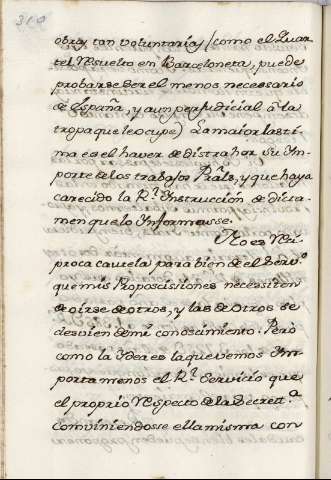 310
obra tan voluntaria (como el Quar
tel Resuelto en Barceloneta, puede
probarse ser el menos necessario
de España, y aun perjudicial a la
tropa que le ocupe) La maior lasti
ma es el haver de distrahor su Im
porte de los trabajos Prâls, y que haya
carecido la Rl. Instruccion de dicta
men que lo Informasse.
No es Reci
proca cautela para bien de el Servo.
que mis Proposiciones necessiten
de oirse de otros, y las de otros se
desvien de mi conoscimiento. Pero
como la Idea es la que vemos Im
porta menos el Rl. Servicio que
el proprio Respecto de la Secrett.a
Comviniendosse ella misma con